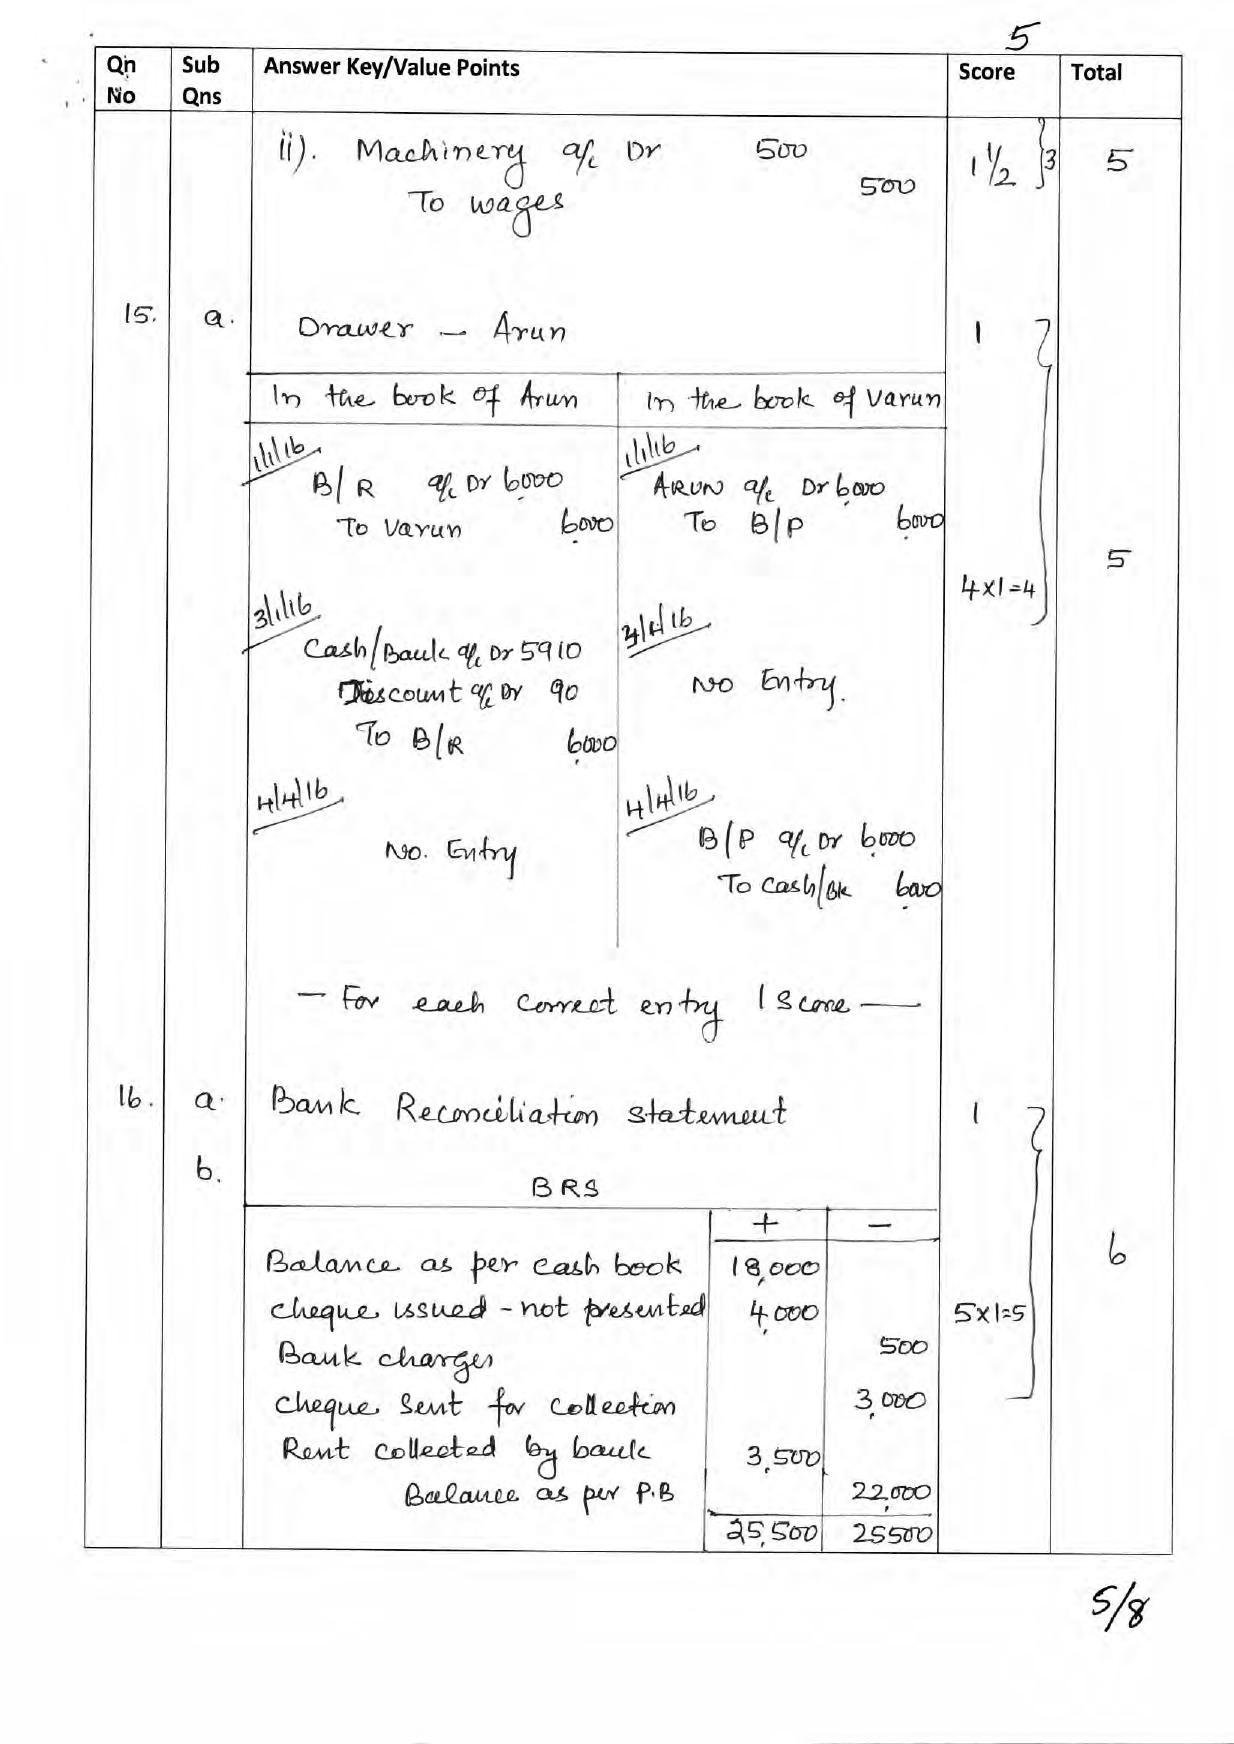 5
Qn No Sub Qns Answer Key/Value Points Score Total
ii). Machinery a/c Dr 500 1 1/2 }3 5
To wages 500
15. a. Drawer – Arun 1
In the book of Arun In the book of Varun
1/1/16 1/1/16
B/R a/c Dr 6000 ARUN a/c Dr 6000
To Varun 6000 To B/P 6000
5
4x1=4
3/1/16
Cash/Bank a/c Dr 5910
Discount a/c Dr 90 No Entry.
To B/R 6000
4/4/16 4/4/16
No. Entry B/P a/c Dr 6000
To cash/Bk 6000
– For each correct entry 1 Score –
16. a. Bank Reconciliation statement 1
b. BRS
+ –
Balance as per cash book 18,000 6
cheque issued - not presented 4,000 5x1=5
Bank charges 500
cheque Sent for collection 3,000
Rent collected by bank 3,500
Balance as per P.B 22,000
25,500 25500
5/8